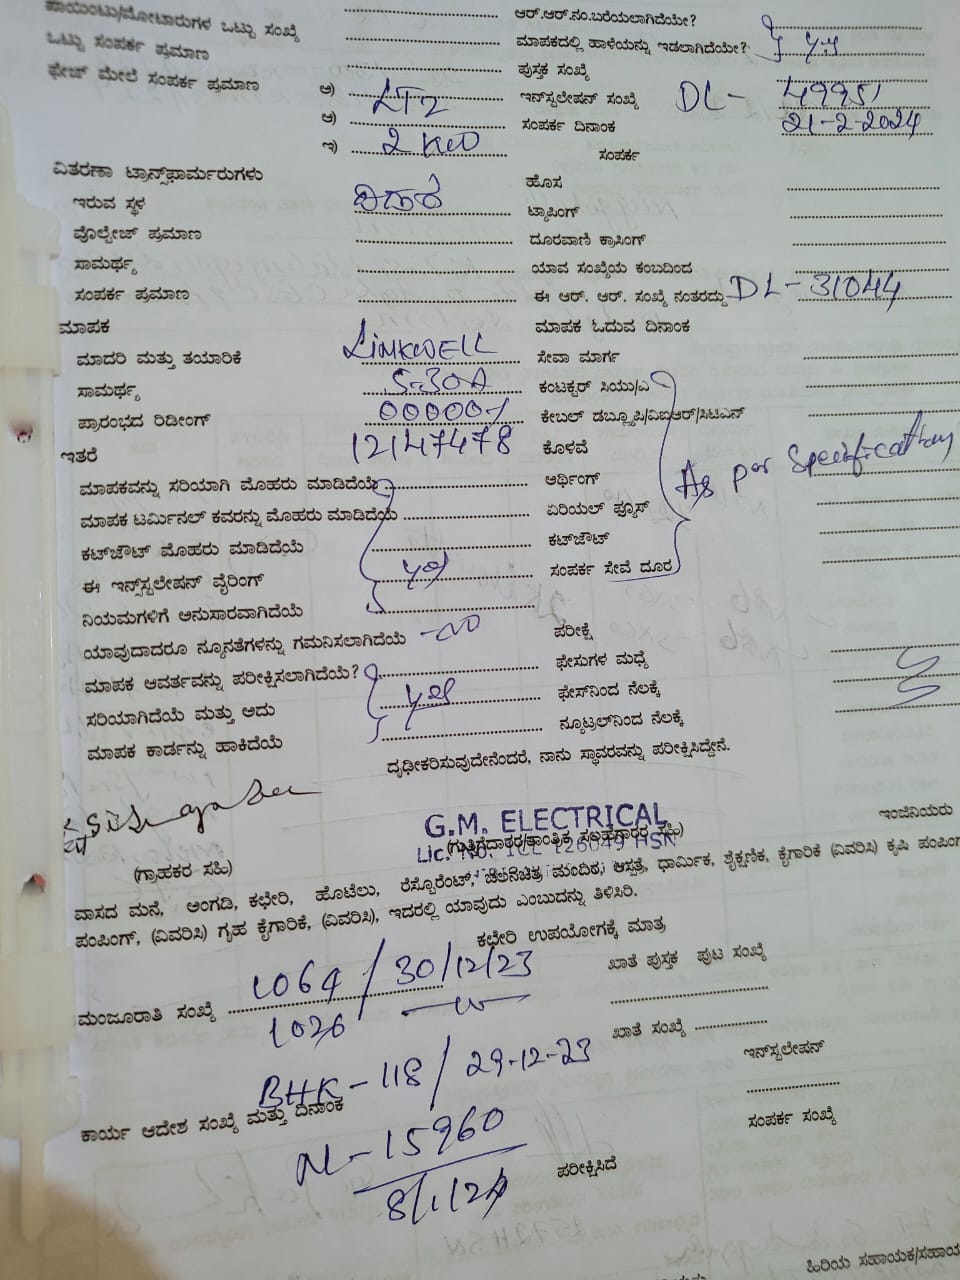 ಪಾಯಿಂಟು/ಮೋಟಾರುಗಳ ಒಟ್ಟು ಸಂಖ್ಯೆ
ಆರ್.ಆರ್.ನಂ.ಬರೆಯಲಾಗಿದೆಯೇ?
ಒಟ್ಟು ಸಂಪರ್ಕ ಪ್ರಮಾಣ
ಮಾಪಕದಲ್ಲಿ ಹಾಳೆಯನ್ನು ಇಡಲಾಗಿದೆಯೇ? yes
ಫೇಜ್ ಮೇಲೆ ಸಂಪರ್ಕ ಪ್ರಮಾಣ
ಪುಸ್ತಕ ಸಂಖ್ಯೆ
ಅ) LT2 ಇನ್‌ಸ್ಟಲೇಷನ್ ಸಂಖ್ಯೆ DL- 49951
ಆ) ಸಂಪರ್ಕ ದಿನಾಂಕ 21-2-2024
ಇ) 2 KW ಸಂಪರ್ಕ
ವಿತರಣಾ ಟ್ರಾನ್ಸ್‌ಫಾರ್ಮರುಗಳು
ಹೊಸ
ಇರುವ ಸ್ಥಳ
ಟ್ಯಾಪಿಂಗ್
ವೊಲ್ಟೇಜ್ ಪ್ರಮಾಣ
ದೂರವಾಣಿ ಕ್ರಾಸಿಂಗ್
ಸಾಮರ್ಥ್ಯ
ಯಾವ ಸಂಖ್ಯೆಯ ಕಂಬದಿಂದ
ಸಂಪರ್ಕ ಪ್ರಮಾಣ
ಈ ಆರ್. ಆರ್. ಸಂಖ್ಯೆ ನಂತರದ್ದು DL-31044
ಮಾಪಕ
ಮಾಪಕ ಓದುವ ದಿನಾಂಕ
ಮಾದರಿ ಮತ್ತು ತಯಾರಿಕೆ LINKWELL ಸೇವಾ ಮಾರ್ಗ
ಸಾಮರ್ಥ್ಯ 5-30A ಕಂಟಕ್ಟರ್ ಸಿಯು/ಎ
ಪ್ರಾರಂಭದ ರಿಡೀಂಗ್ 000001 ಕೇಬಲ್ ಡಬ್ಲ್ಯೂಪಿ/ವಿಐಆರ್/ಸಿಟಿಎಸ್
ಇತರೆ 12147478 ಕೊಳವೆ
ಮಾಪಕವನ್ನು ಸರಿಯಾಗಿ ಮೊಹರು ಮಾಡಿದೆಯೆ ಅರ್ಥಿಂಗ್ As per Specification
ಮಾಪಕ ಟರ್ಮಿನಲ್ ಕವರನ್ನು ಮೊಹರು ಮಾಡಿದೆಯೆ ಏರಿಯಲ್ ಫ್ಯೂಸ್
ಕಟ್‌ಔಟ್ ಮೊಹರು ಮಾಡಿದೆಯೆ ಕಟ್‌ಔಟ್
ಈ ಇನ್ಸ್‌ಸ್ಟಲೇಷನ್ ವೈರಿಂಗ್ yes ಸಂಪರ್ಕ ಸೇವೆ ದೂರ
ನಿಯಮಗಳಿಗೆ ಅನುಸಾರವಾಗಿದೆಯೆ
ಯಾವುದಾದರೂ ನ್ಯೂನತೆಗಳನ್ನು ಗಮನಿಸಲಾಗಿದೆಯೆ -NO ಪರೀಕ್ಷೆ
ಮಾಪಕ ಆವರ್ತವನ್ನು ಪರೀಕ್ಷಿಸಲಾಗಿದೆಯೆ? ಫೇಸುಗಳ ಮಧ್ಯೆ
ಸರಿಯಾಗಿದೆಯೆ ಮತ್ತು ಅದು yes ಫೇಸ್‌ನಿಂದ ನೆಲಕ್ಕೆ
ಮಾಪಕ ಕಾರ್ಡನ್ನು ಹಾಕಿದೆಯೆ ನ್ಯೂಟ್ರಲ್‌ನಿಂದ ನೆಲಕ್ಕೆ
ದೃಢೀಕರಿಸುವುದೇನೆಂದರೆ, ನಾನು ಸ್ಥಾವರವನ್ನು ಪರೀಕ್ಷಿಸಿದ್ದೇನೆ.
G.M. ELECTRICAL
ಇಂಜಿನಿಯರು
(ಗುತ್ತಿಗೆದಾರರ/ತಾಂತ್ರಿಕ ಸಲಹೆಗಾರರ ಸಹಿ)
Lic. No. 1CL 126049 HSN
(ಗ್ರಾಹಕರ ಸಹಿ)
ವಾಸದ ಮನೆ, ಅಂಗಡಿ, ಕಛೇರಿ, ಹೊಟೆಲು, ರೆಸ್ಟೋರೆಂಟ್, ಚಲನಚಿತ್ರ ಮಂದಿರ, ಆಸ್ಪತ್ರೆ, ಧಾರ್ಮಿಕ, ಶೈಕ್ಷಣಿಕ, ಕೈಗಾರಿಕೆ (ವಿವರಿಸಿ) ಕೃಷಿ ಪಂಪಿಂಗ್
ಪಂಪಿಂಗ್, (ವಿವರಿಸಿ) ಗೃಹ ಕೈಗಾರಿಕೆ, (ವಿವರಿಸಿ), ಇದರಲ್ಲಿ ಯಾವುದು ಎಂಬುದನ್ನು ತಿಳಿಸಿರಿ.
ಕಛೇರಿ ಉಪಯೋಗಕ್ಕೆ ಮಾತ್ರ
ಮಂಜೂರಾತಿ ಸಂಖ್ಯೆ 1064 / 30/12/23 ಖಾತೆ ಪುಸ್ತಕ ಪುಟ ಸಂಖ್ಯೆ
1026
ಖಾತೆ ಸಂಖ್ಯೆ
BHK-118 / 29-12-23
ಇನ್‌ಸ್ಟಲೇಷನ್
ಕಾರ್ಯ ಆದೇಶ ಸಂಖ್ಯೆ ಮತ್ತು ದಿನಾಂಕ
ಸಂಪರ್ಕ ಸಂಖ್ಯೆ
-15960
8/1/24
ಪರೀಕ್ಷಿಸಿದೆ
ಹಿರಿಯ ಸಹಾಯಕ/ಸಹಾಯ